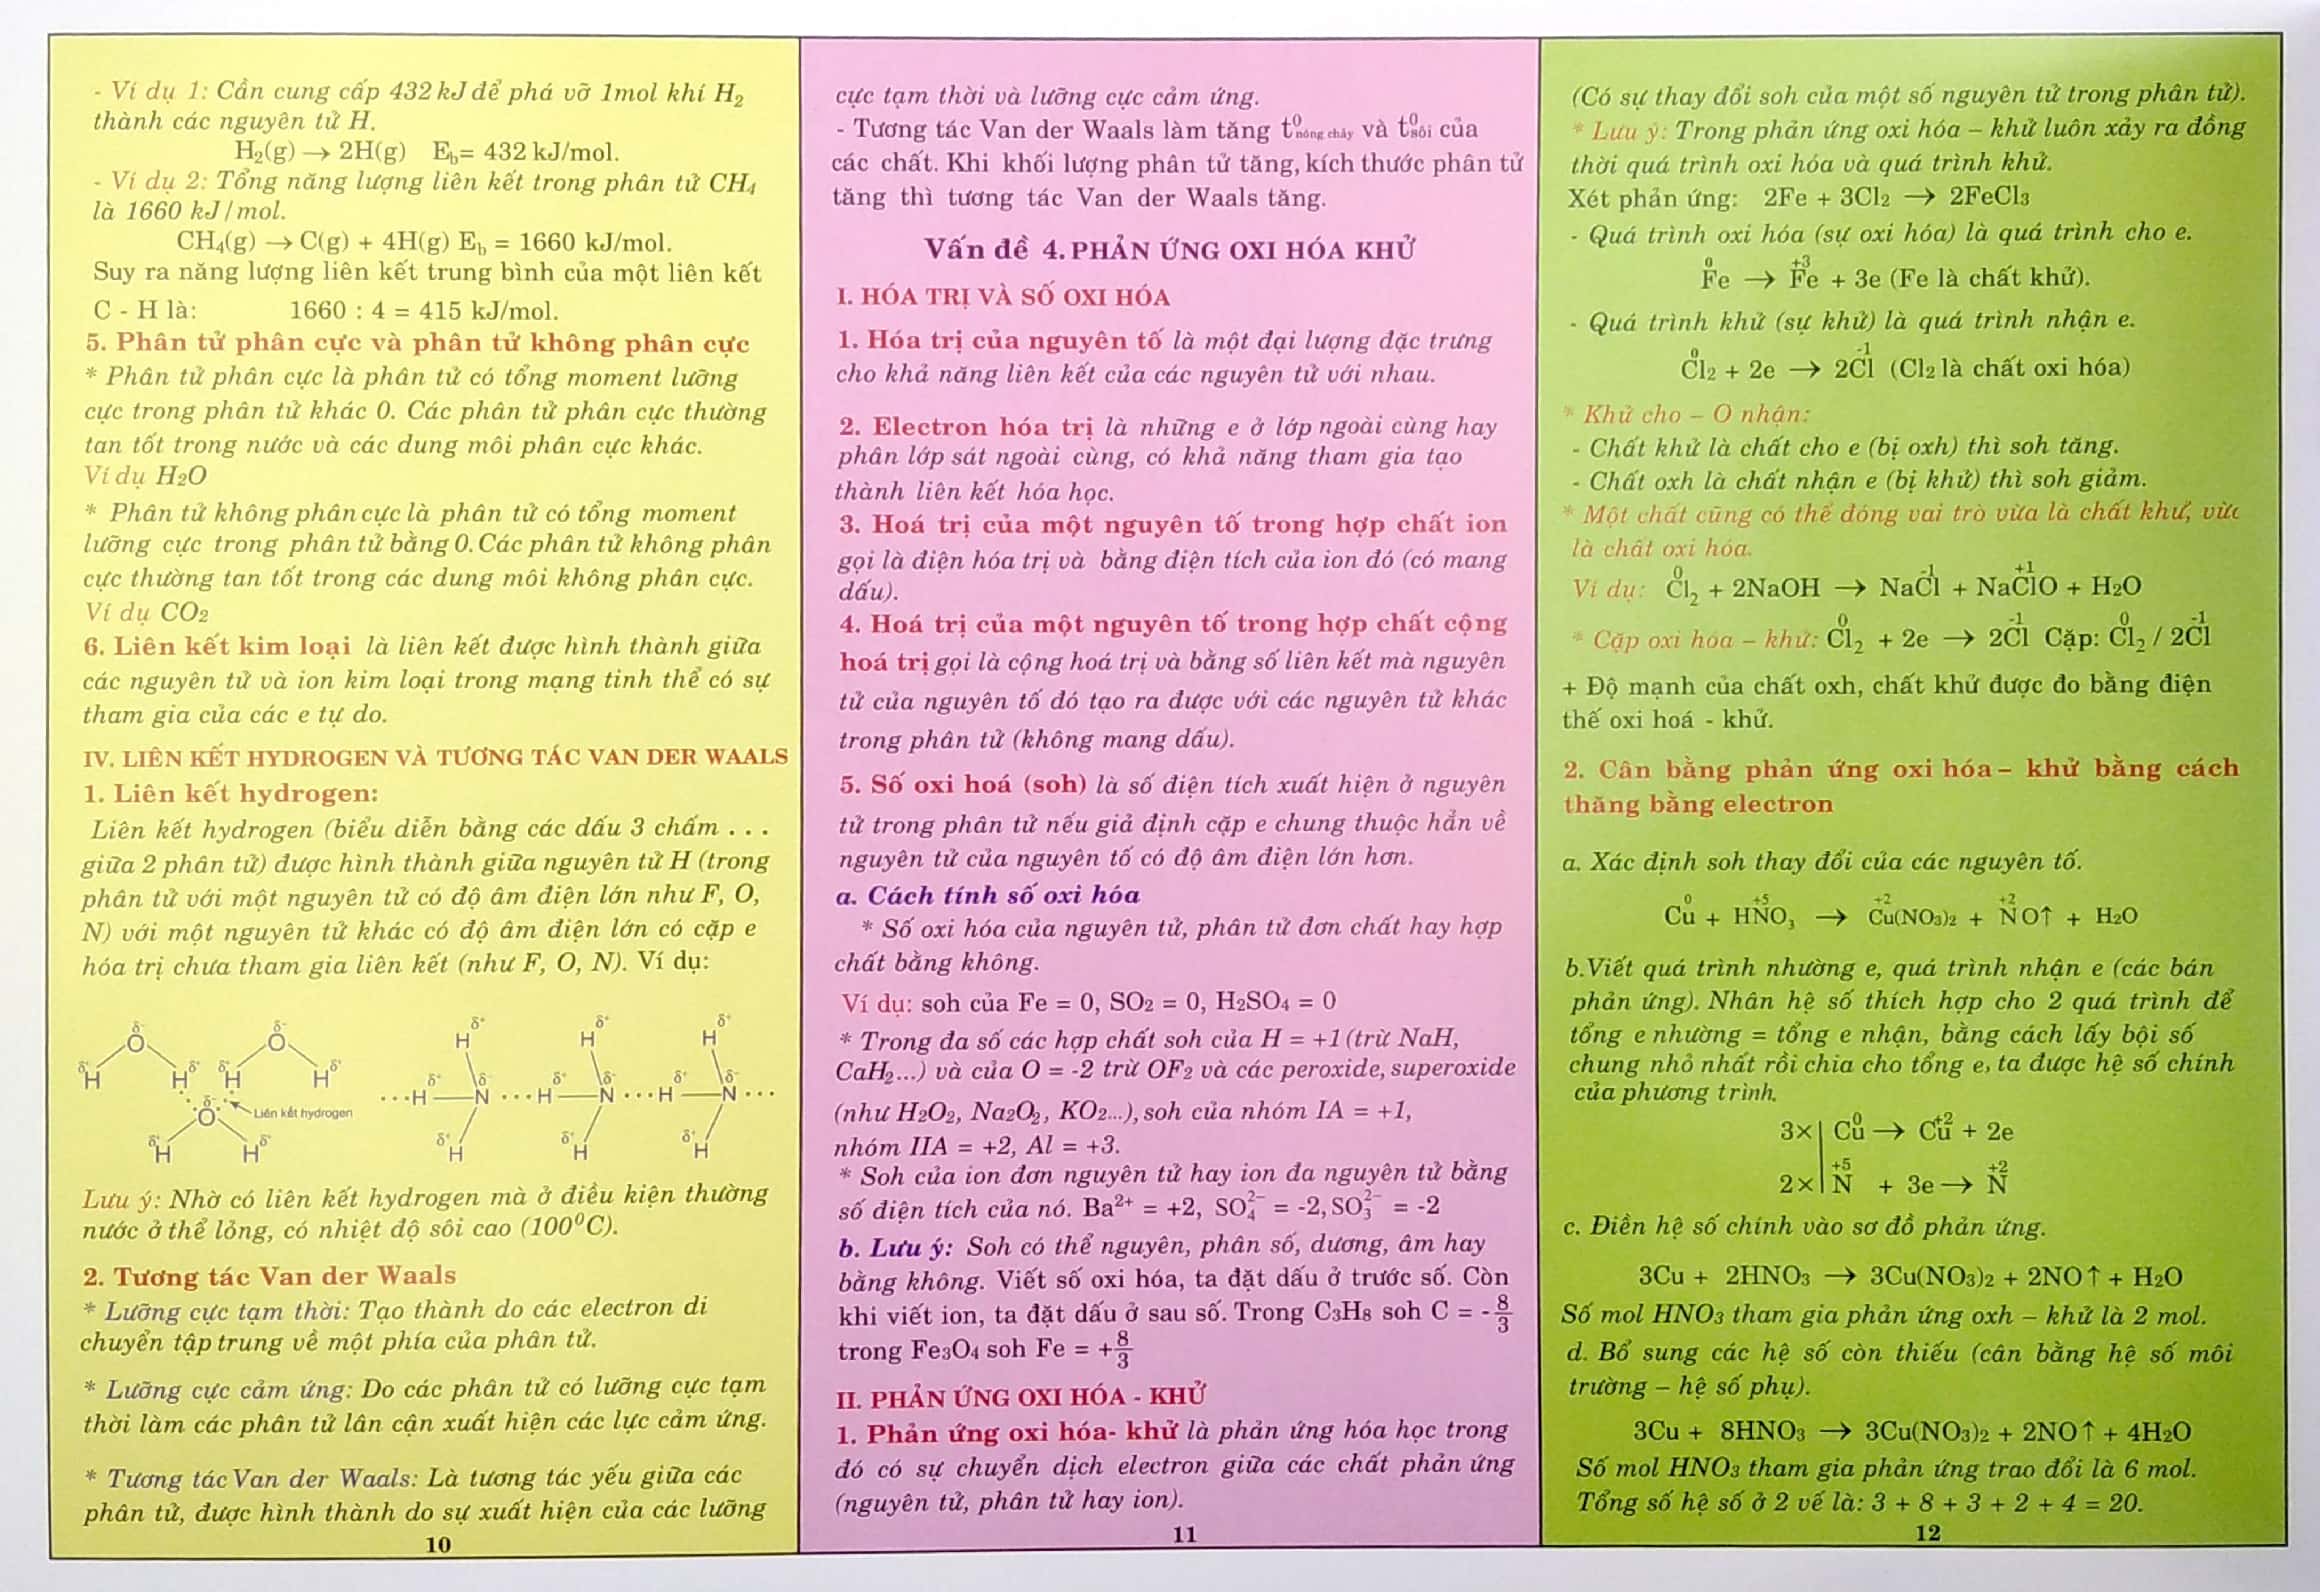 - Ví dụ 1: Cần cung cấp 432 kJ để phá vỡ 1mol khí H₂
thành các nguyên tử H.
H₂(g) → 2H(g) E_b= 432 kJ/mol.
- Ví dụ 2: Tổng năng lượng liên kết trong phân tử CH₄
là 1660 kJ/mol.
CH₄(g) → C(g) + 4H(g) E_b = 1660 kJ/mol.
Suy ra năng lượng liên kết trung bình của một liên kết
C - H là: 1660 : 4 = 415 kJ/mol.
5. Phân tử phân cực và phân tử không phân cực
* Phân tử phân cực là phân tử có tổng moment lưỡng
cực trong phân tử khác 0. Các phân tử phân cực thường
tan tốt trong nước và các dung môi phân cực khác.
Ví dụ H₂O
* Phân tử không phân cực là phân tử có tổng moment
lưỡng cực trong phân tử bằng 0. Các phân tử không phân
cực thường tan tốt trong các dung môi không phân cực.
Ví dụ CO₂
6. Liên kết kim loại là liên kết được hình thành giữa
các nguyên tử và ion kim loại trong mạng tinh thể có sự
tham gia của các e tự do.
IV. LIÊN KẾT HYDROGEN VÀ TƯƠNG TÁC VAN DER WAALS
1. Liên kết hydrogen:
Liên kết hydrogen (biểu diễn bằng các dấu 3 chấm . . .
giữa 2 phân tử) được hình thành giữa nguyên tử H (trong
phân tử với một nguyên tử có độ âm điện lớn như F, O,
N) với một nguyên tử khác có độ âm điện lớn có cặp e
hóa trị chưa tham gia liên kết (như F, O, N). Ví dụ:
δ⁻ δ⁻ δ⁺ δ⁺ δ⁺
O O H H H
δ⁺ δ⁺ δ⁺ δ⁺ δ⁺ δ⁻ δ⁺ δ⁻ δ⁺ δ⁻
H H H H ···H—N ···H—N ···H—N ···
δ⁻
O Liên kết hydrogen
δ⁺ δ⁺ δ⁺ δ⁺ δ⁺
H H H H H
Lưu ý: Nhờ có liên kết hydrogen mà ở điều kiện thường
nước ở thể lỏng, có nhiệt độ sôi cao (100⁰C).
2. Tương tác Van der Waals
* Lưỡng cực tạm thời: Tạo thành do các electron di
chuyển tập trung về một phía của phân tử.
* Lưỡng cực cảm ứng: Do các phân tử có lưỡng cực tạm
thời làm các phân tử lân cận xuất hiện các lực cảm ứng.
* Tương tác Van der Waals: Là tương tác yếu giữa các
phân tử, được hình thành do sự xuất hiện của các lưỡng
10
cực tạm thời và lưỡng cực cảm ứng.
- Tương tác Van der Waals làm tăng t⁰nóng chảy và t⁰sôi của
các chất. Khi khối lượng phân tử tăng, kích thước phân tử
tăng thì tương tác Van der Waals tăng.
Vấn đề 4. PHẢN ỨNG OXI HÓA KHỬ
I. HÓA TRỊ VÀ SỐ OXI HÓA
1. Hóa trị của nguyên tố là một đại lượng đặc trưng
cho khả năng liên kết của các nguyên tử với nhau.
2. Electron hóa trị là những e ở lớp ngoài cùng hay
phân lớp sát ngoài cùng, có khả năng tham gia tạo
thành liên kết hóa học.
3. Hoá trị của một nguyên tố trong hợp chất ion
gọi là điện hóa trị và bằng điện tích của ion đó (có mang
dấu).
4. Hoá trị của một nguyên tố trong hợp chất cộng
hoá trị gọi là cộng hoá trị và bằng số liên kết mà nguyên
tử của nguyên tố đó tạo ra được với các nguyên tử khác
trong phân tử (không mang dấu).
5. Số oxi hoá (soh) là số điện tích xuất hiện ở nguyên
tử trong phân tử nếu giả định cặp e chung thuộc hẳn về
nguyên tử của nguyên tố có độ âm điện lớn hơn.
a. Cách tính số oxi hóa
* Số oxi hóa của nguyên tử, phân tử đơn chất hay hợp
chất bằng không.
Ví dụ: soh của Fe = 0, SO₂ = 0, H₂SO₄ = 0
* Trong đa số các hợp chất soh của H = +1 (trừ NaH,
CaH₂...) và của O = -2 trừ OF₂ và các peroxide, superoxide
(như H₂O₂, Na₂O₂, KO₂...), soh của nhóm IA = +1,
nhóm IIA = +2, Al = +3.
* Soh của ion đơn nguyên tử hay ion đa nguyên tử bằng
số điện tích của nó. Ba²⁺ = +2, SO₄²⁻ = -2, SO₃²⁻ = -2
b. Lưu ý: Soh có thể nguyên, phân số, dương, âm hay
bằng không. Viết số oxi hóa, ta đặt dấu ở trước số. Còn
khi viết ion, ta đặt dấu ở sau số. Trong C₃H₈ soh C = -8/3
trong Fe₃O₄ soh Fe = +8/3
II. PHẢN ỨNG OXI HÓA - KHỬ
1. Phản ứng oxi hóa- khử là phản ứng hóa học trong
đó có sự chuyển dịch electron giữa các chất phản ứng
(nguyên tử, phân tử hay ion).
11
(Có sự thay đổi soh của một số nguyên tử trong phân tử).
* Lưu ý: Trong phản ứng oxi hóa – khử luôn xảy ra đồng
thời quá trình oxi hóa và quá trình khử.
Xét phản ứng: 2Fe + 3Cl₂ → 2FeCl₃
- Quá trình oxi hóa (sự oxi hóa) là quá trình cho e.
0 +3
Fe → Fe + 3e (Fe là chất khử).
- Quá trình khử (sự khử) là quá trình nhận e.
0 -1
Cl₂ + 2e → 2Cl (Cl₂ là chất oxi hóa)
* Khử cho – O nhận:
- Chất khử là chất cho e (bị oxh) thì soh tăng.
- Chất oxh là chất nhận e (bị khử) thì soh giảm.
* Một chất cũng có thể đóng vai trò vừa là chất khử, vừa
là chất oxi hóa.
0 -1 +1
Ví dụ: Cl₂ + 2NaOH → NaCl + NaClO + H₂O
0 -1 0 -1
* Cặp oxi hóa – khử: Cl₂ + 2e → 2Cl Cặp: Cl₂ / 2Cl
+ Độ mạnh của chất oxh, chất khử được đo bằng điện
thế oxi hoá - khử.
2. Cân bằng phản ứng oxi hóa – khử bằng cách
thăng bằng electron
a. Xác định soh thay đổi của các nguyên tố.
0 +5 +2 +2
Cu + HNO₃ → Cu(NO₃)₂ + NO↑ + H₂O
b.Viết quá trình nhường e, quá trình nhận e (các bán
phản ứng). Nhân hệ số thích hợp cho 2 quá trình để
tổng e nhường = tổng e nhận, bằng cách lấy bội số
chung nhỏ nhất rồi chia cho tổng e, ta được hệ số chính
của phương trình.
0 +2
3× | Cu → Cu + 2e
+5 +2
2× | N + 3e → N
c. Điền hệ số chính vào sơ đồ phản ứng.
3Cu + 2HNO₃ → 3Cu(NO₃)₂ + 2NO↑ + H₂O
Số mol HNO₃ tham gia phản ứng oxh – khử là 2 mol.
d. Bổ sung các hệ số còn thiếu (cân bằng hệ số môi
trường – hệ số phụ).
3Cu + 8HNO₃ → 3Cu(NO₃)₂ + 2NO↑ + 4H₂O
Số mol HNO₃ tham gia phản ứng trao đổi là 6 mol.
Tổng số hệ số ở 2 vế là: 3 + 8 + 3 + 2 + 4 = 20.
12